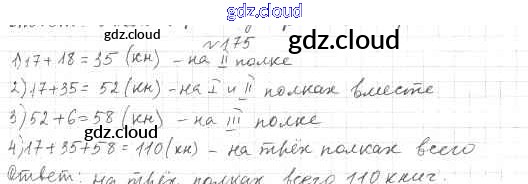 gdz.cloud
№175
gdz.cloud
1) 17 + 18 = 35 (кн) - на II полке
2) 17+35 = 52 (кн) - на I и II полках вместе
3) 52 + 6 = 58 (кн) - на III полке
gdz.cloud
gdz.cloud
4) 17 + 35 + 58 = 110 (кн) - на трёх полках всего
Ответ: на трёх полках всего 110 книг.